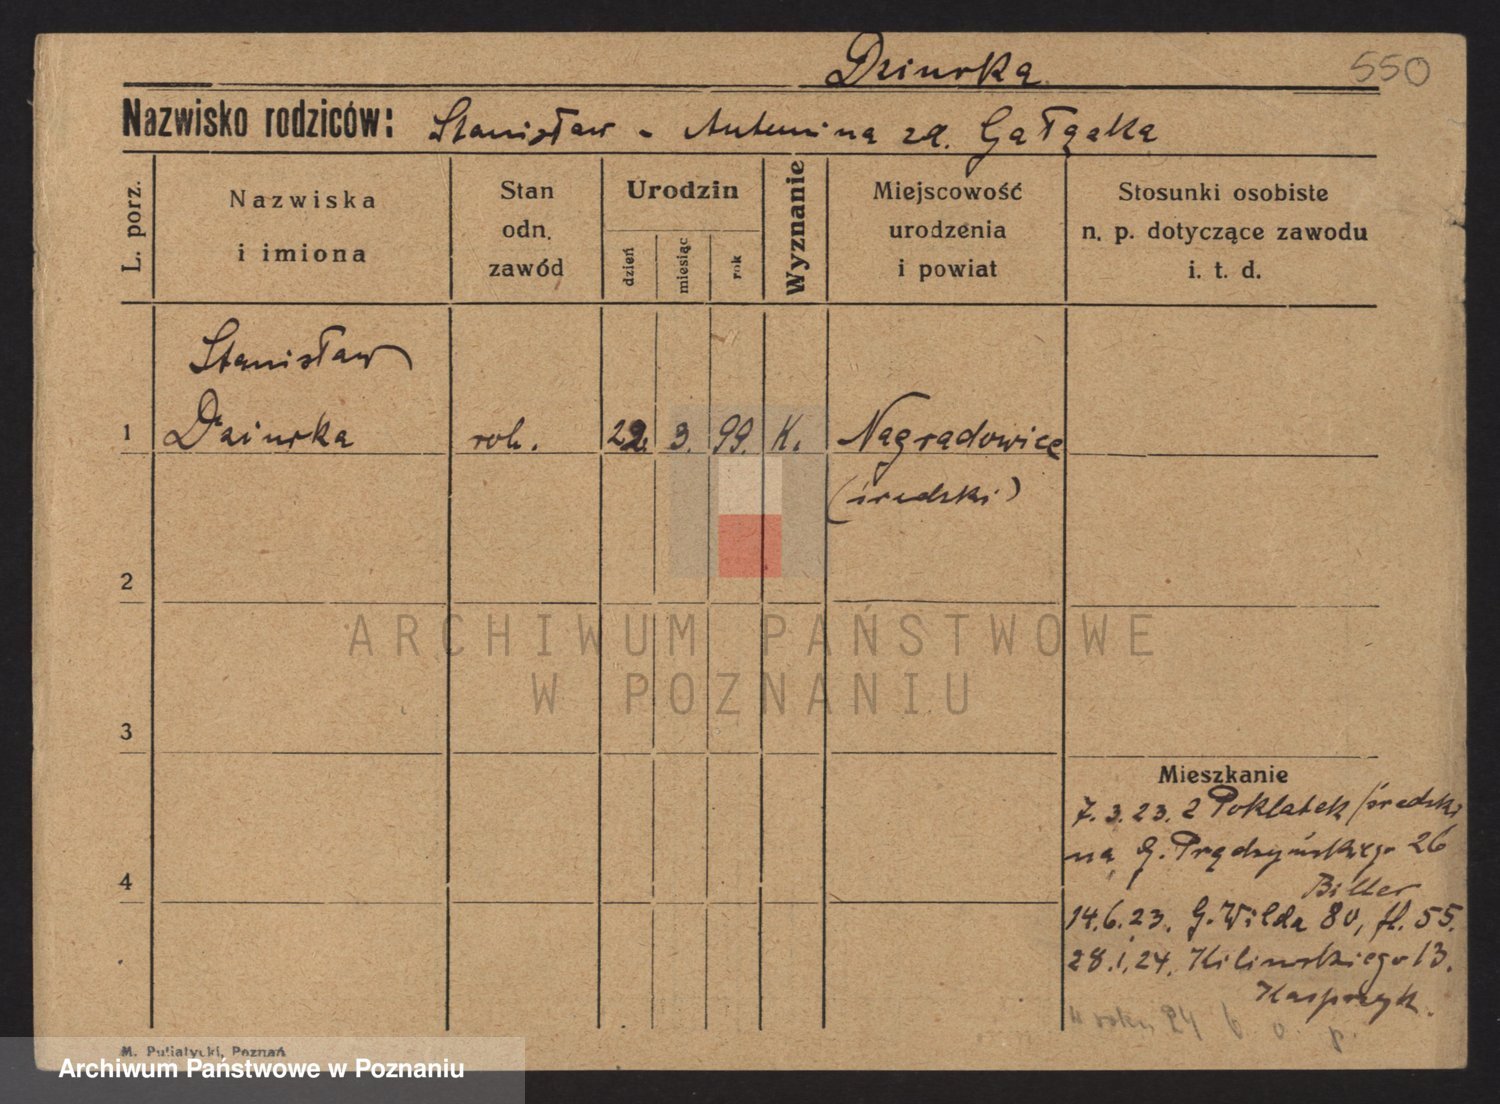 Dziurka 550
Nazwisko rodziców: Stanisław - Antonina zd. Gałązka
L. porz. Nazwiska i imiona Stan odn. zawód Urodzin dzień miesiąc rok Wyznanie Miejscowość urodzenia i powiat Stosunki osobiste n. p. dotyczące zawodu i. t. d.
Stanisław
1 Dziurka rob. 22. 3. 99. K. Nagradowice
(średzki)
2
ARCHIWUM PAŃSTWOWE
W POZNANIU
3
Mieszkanie
7.3.23. z Poklatek /średzki
na G. Prądzyńskiego 26
4
Bitter
14.6.23. G. Wilda 80, fl. 55.
28.1.24. Kilinskiego 13.
Kasprzyk.
w roku 24 b. o. p.
M. Putiatycki, Poznań
Archiwum Państwowe w Poznaniu